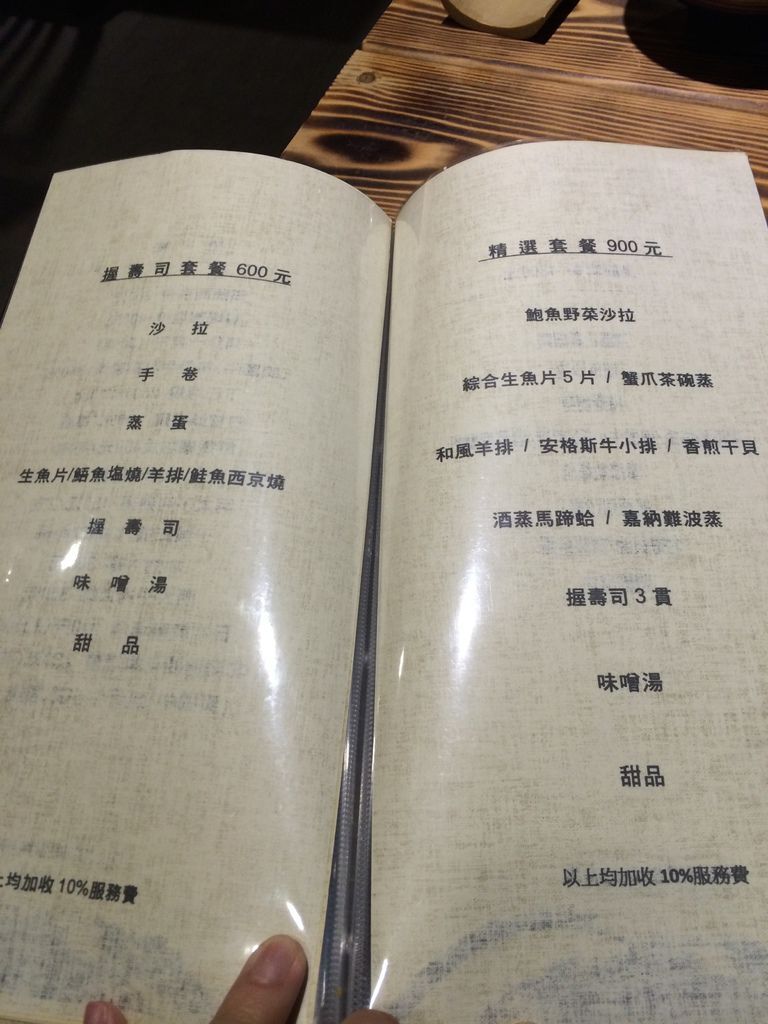 握壽司套餐 600 元
沙 拉
手 卷
蒸 蛋
生魚片/鯃魚塩燒/羊排/鮭魚西京燒
握 壽 司
味 噌 湯
甜 品
上均加收 10%服務費
精選套餐 900 元
鮑魚野菜沙拉
綜合生魚片 5 片 / 蟹爪茶碗蒸
和風羊排 / 安格斯牛小排 / 香煎干貝
酒蒸馬蹄蛤 / 嘉納難波蒸
握壽司 3 貫
味噌湯
甜品
以上均加收 10%服務費